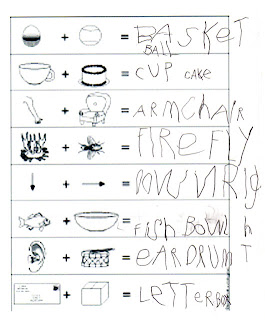 BASKET
BALL
CUP CAKE
ARMCHAIR
FIREFLY
DOWNRIGhT
FISh BOWL
EARDRUM
LETTERBOX